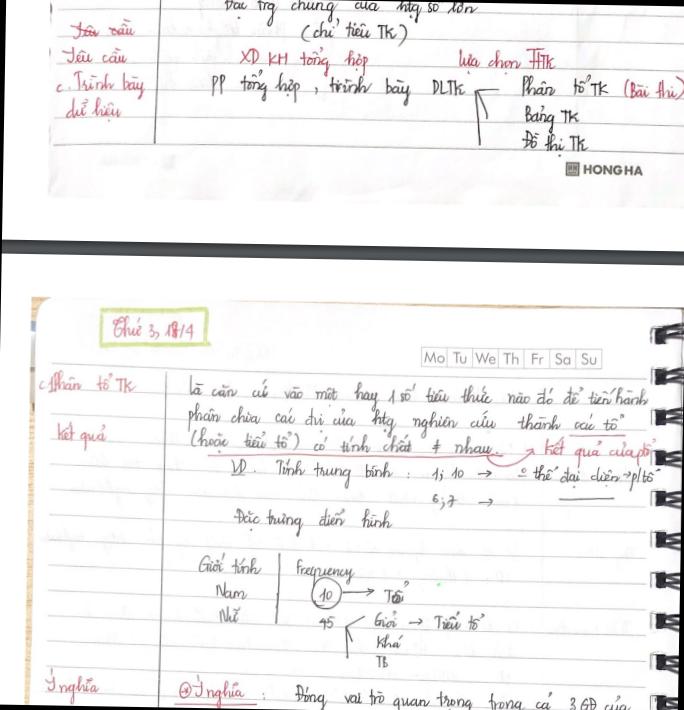 Đặc trg chung của htg số lớn
Yêu cầu (chỉ tiêu TK)
Yêu cầu XD KH tổng hợp lựa chọn
c. Trình bày PP tổng hợp, trình bày DLTK Phân tổ TK (Bài thi)
dữ liệu Bảng TK
Đồ thị TK
HONG HA
Thứ 3, 18/4
Mo Tu We Th Fr Sa Su
c. Phân tổ TK là căn cứ vào một hay 1 số tiêu thức nào đó để tiến hành
phân chia các đvị của htg nghiên cứu thành các tổ
Kết quả (hoặc tiểu tổ) có tính chất ≠ nhau → kết quả của ptổ
VD. Tính trung bình : 1; 10 → thế đại diện → p/tổ
6; 7 →
Đặc trưng điển hình
Giới tính Frequency
Nam 10 → Tổ
Nữ 45 Giỏi → Tiểu tổ
Khá
TB
Ý nghĩa ⊕ Ý nghĩa : Đóng vai trò quan trọng trong cả 3 GĐ của